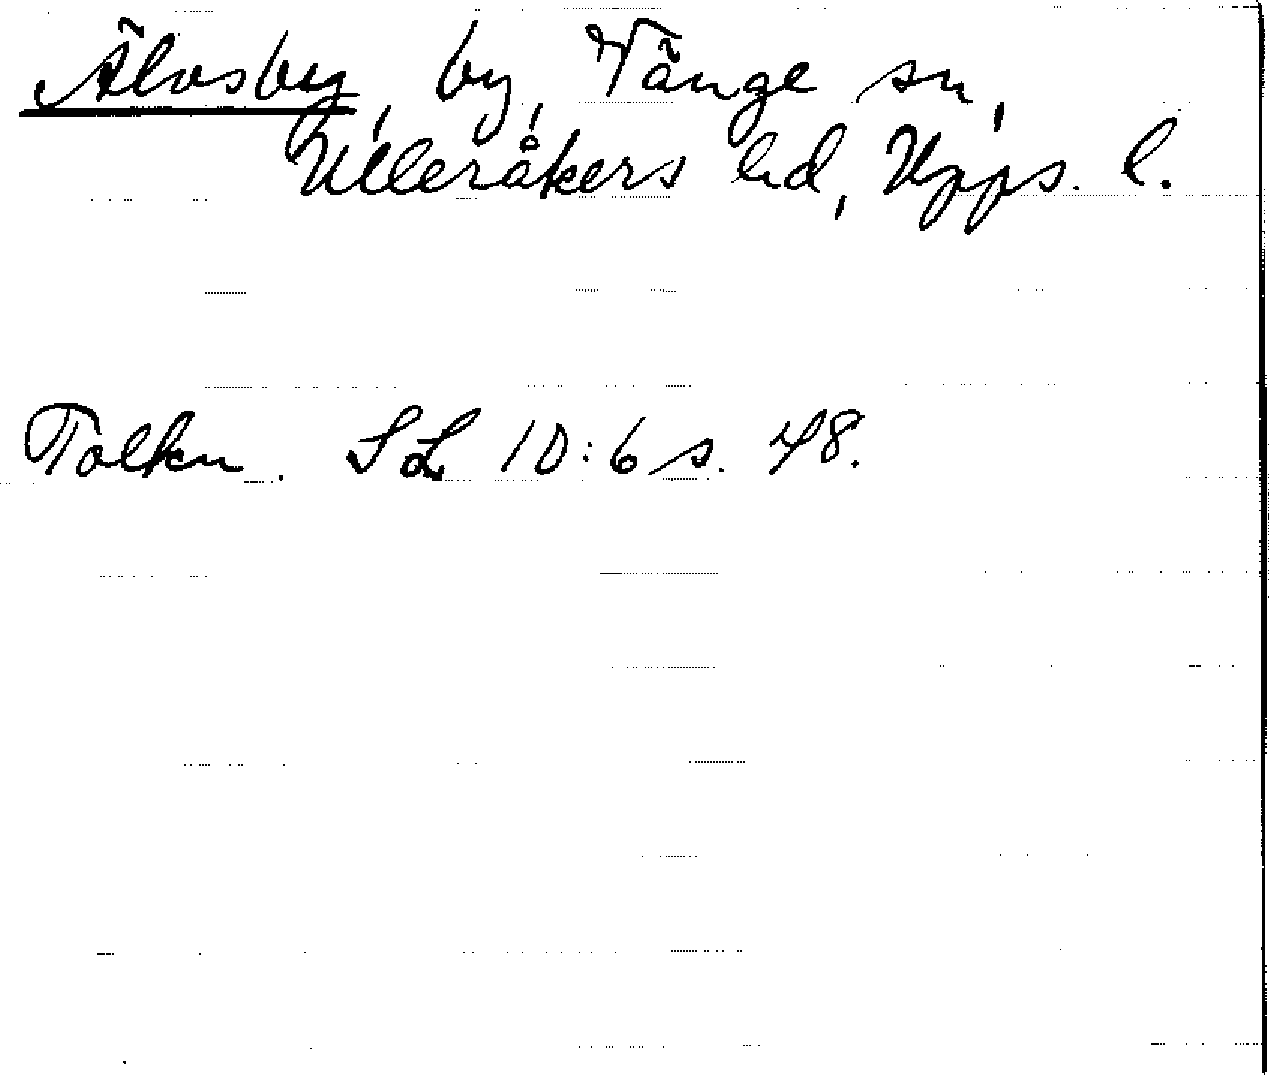 Älvsby, by, Vänge sn,
Ulleråkers hd, Upps. l.
Tolkn. SL 10:6 s. 48.